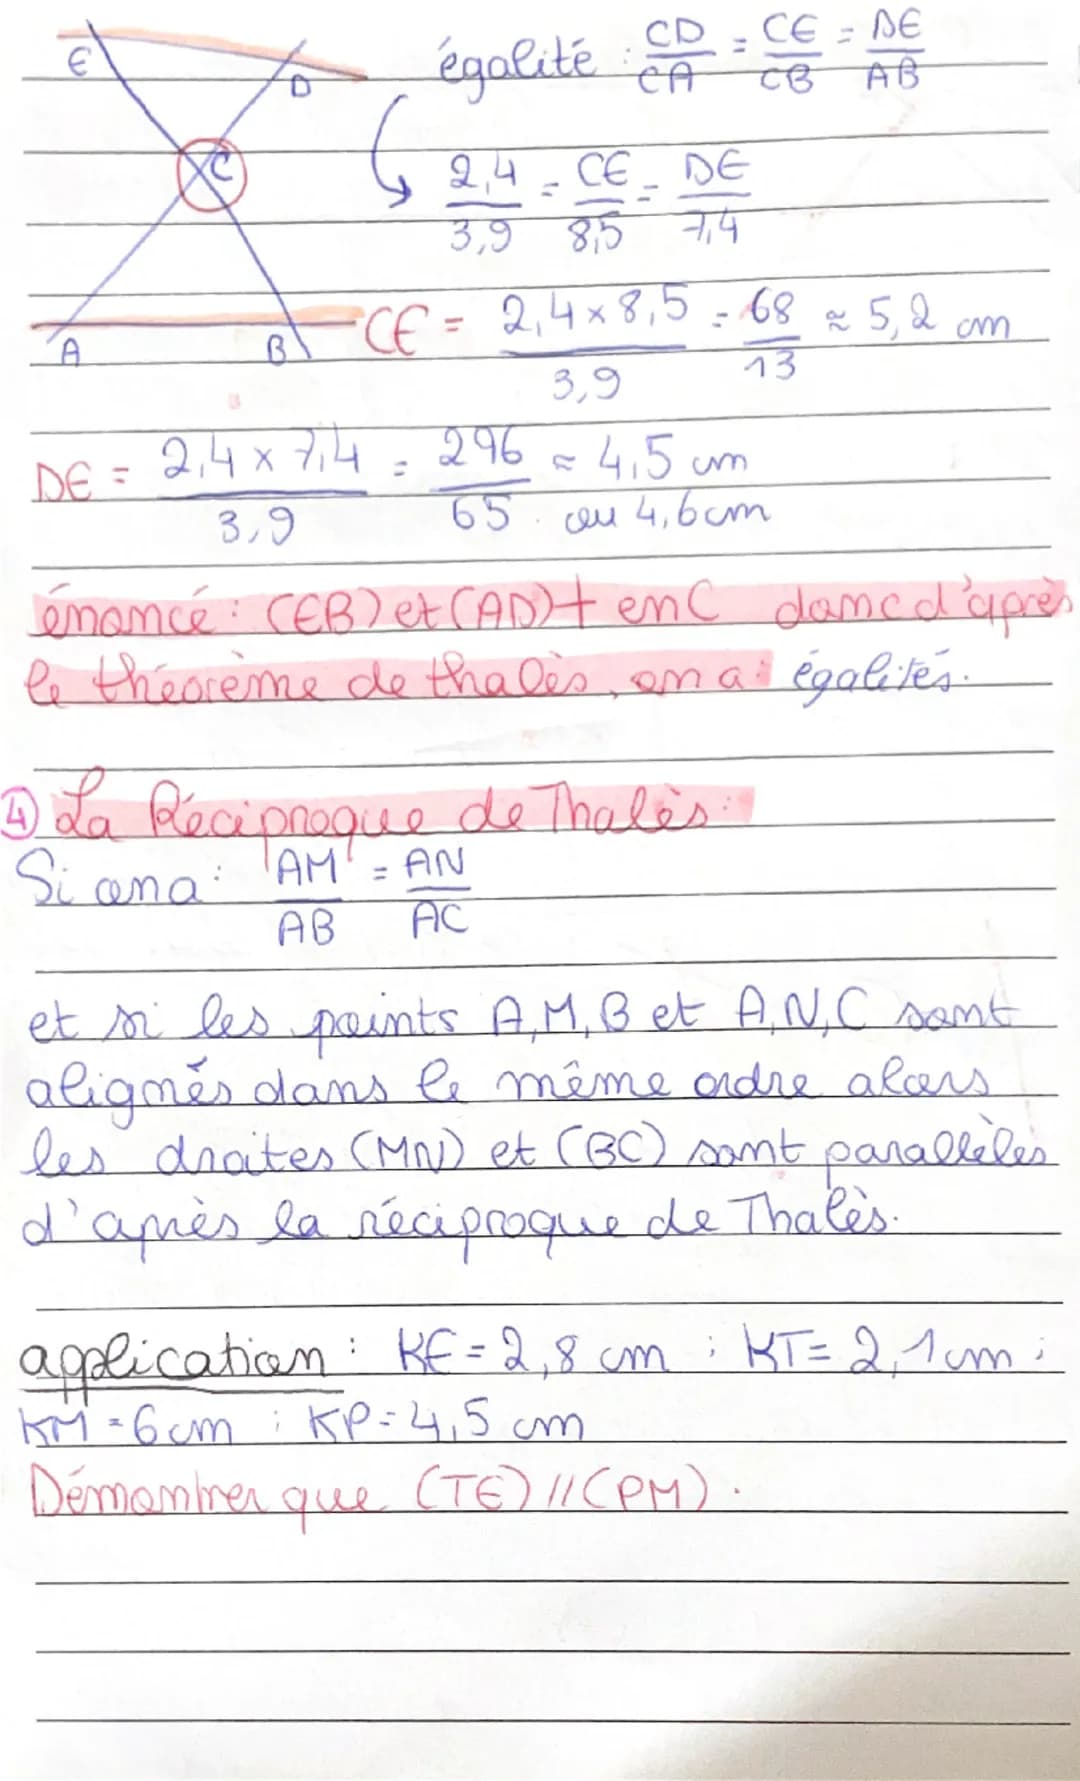 E
D
C
A
B
égalité : CD/CA = CE/CB = DE/AB
2,4/3,9 = CE/8,5 = DE/7,4
CE = 2,4 x 8,5/3,9 = 68/13 ≈ 5,2 cm
DE = 2,4 x 7,4/3,9 = 296/65 ≈ 4,5 cm
ou 4,6cm
énoncé : (EB) et (AD) + en C donc d'après
le théorème de thalès, on a : égalités.
④ La Réciproque de Thalès :
Si on a : AM/AB = AN/AC
et si les points A, M, B et A, N, C sont
alignés dans le même ordre alors
les droites (MN) et (BC) sont parallèles
d'après la réciproque de Thalès.
application : KE = 2,8 cm ; KT = 2,1cm ;
KM = 6cm ; KP = 4,5 cm
Démontrer que (TE) // (PM) .